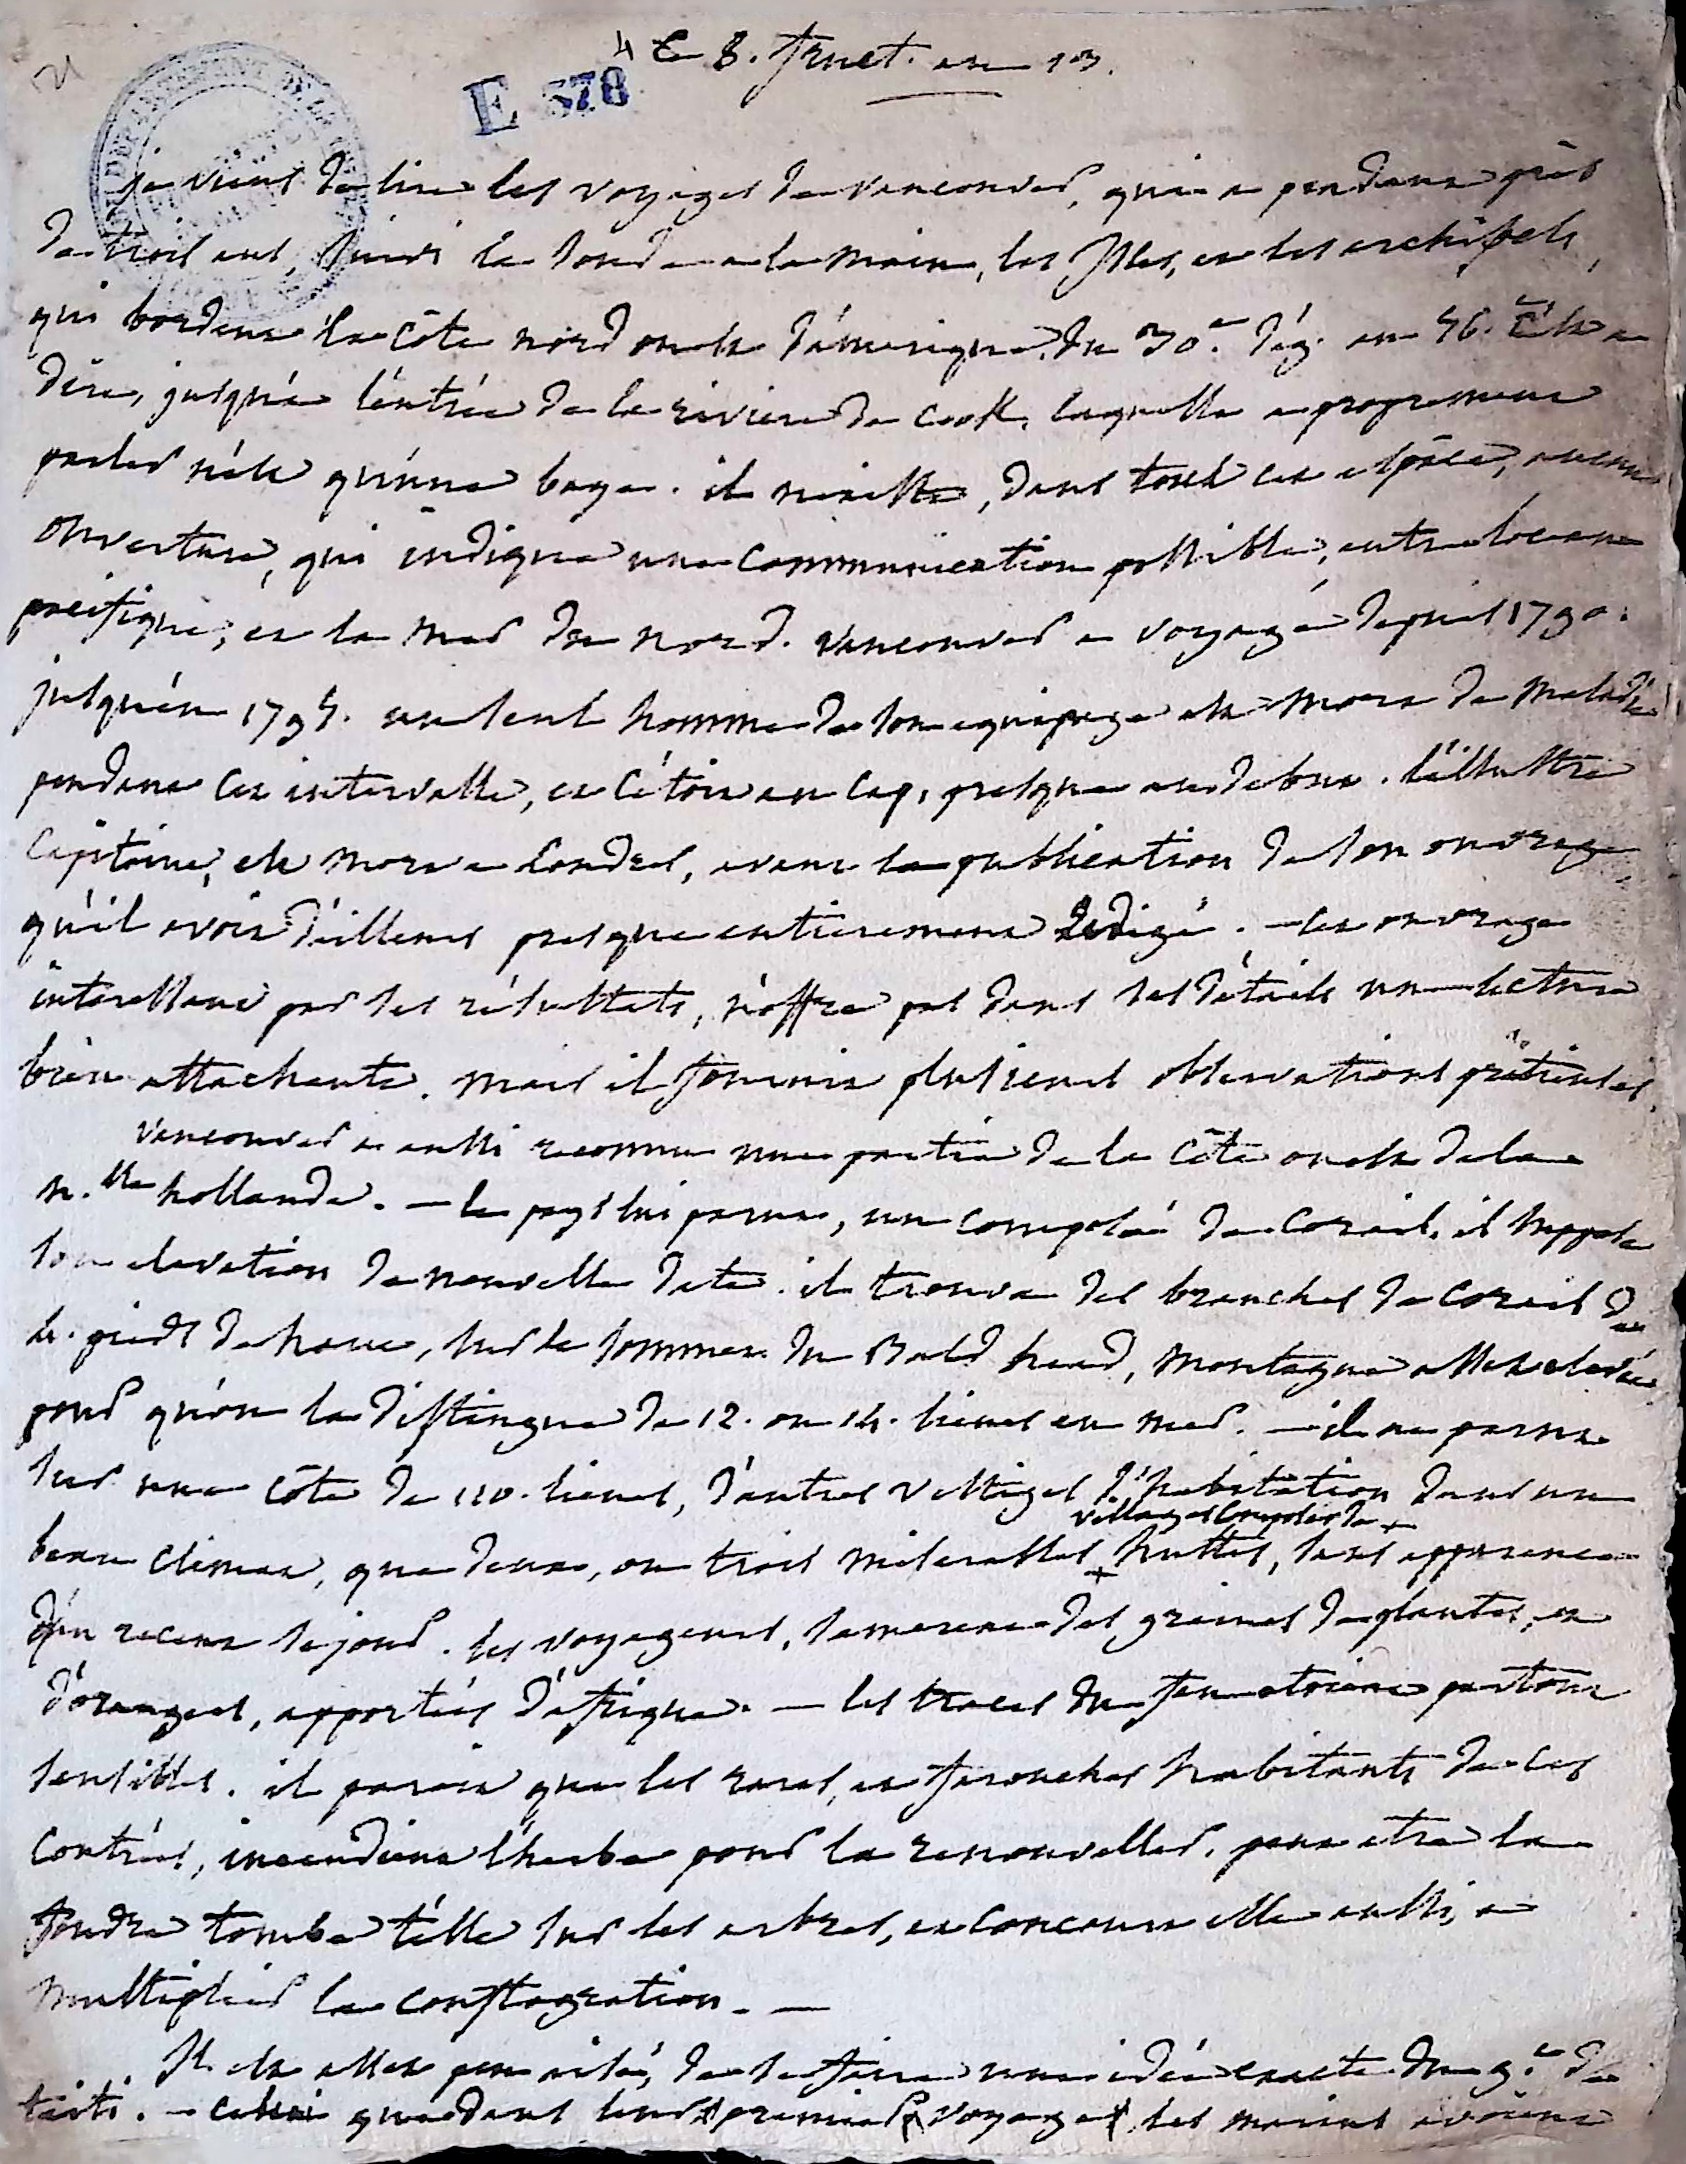 Ce 8. fruct. an 13.
E 378
je viens de lire les voyages de vancouver, qui a pendant près
de trois ans, suivi la sonde a la main, les Isles, et les archipels,
qui bordent la côte nord ouest d'amerique, du 30.e dég. au 56. C'est a
dire, jusqu'a l'entrée de la riviere de Cook, laquelle a proprement
parler n'est qu'une baye. il n'existe, dans tout cet espace, aucune
ouverture, qui indique une communication possible, entre l'ocean
pacifique, et la mer du nord. vancouver a voyagé depuis 1790.
jusqu'en 1795. un seul homme de son equipage est mort de maladie
pendant cet intervalle, et c'étoit au Cap, presque au debut. l'illustre
Capitaine, est mort a Londres, avant la publication de son ouvrage
qu'il avoit d'ailleurs presque entierement redigé. — cet ouvrage
interessant par ses résultats, n'offre pas dans ses détails une lecture
bien attachante. mais il fournit plusieurs observations
vancouver a aussi reconnu une partie de la Côte ouest de la
n.lle hollande. — le pays lui parut, un composé de Corail. il suppose
son elevation de nouvelle date. il trouva des branches de Corail de
4. pieds de haut, sur le sommet du Bald head, montagne assez elevée
pour qu'on la distingue de 12. ou 14. lieues en mer. — il ne parut
sur une côte de 110. lieues, d'autres vestiges d'habitation dans un
villages composés de +
beau climat, que deux, ou trois miserables + huttes, sans apparence
d'un recent sejour. les voyageurs, semerent des graines de plantes, et
d'oranges, apportées d'afrique. — les traces du feu etoient partout
sensibles. il paroit que les rares, et farouches habitants de ces
contrées, incendient l'herbe pour la renouveller. peut etre la
foudre tombe t'elle sur les arbres, et concourt elle aussi, a
multiplier la conflagration. —
Il est assez peu aisé, de se faire une idée exacte du g.t de
taiti. — celui que dans leurs premiers voyages les marins avoient